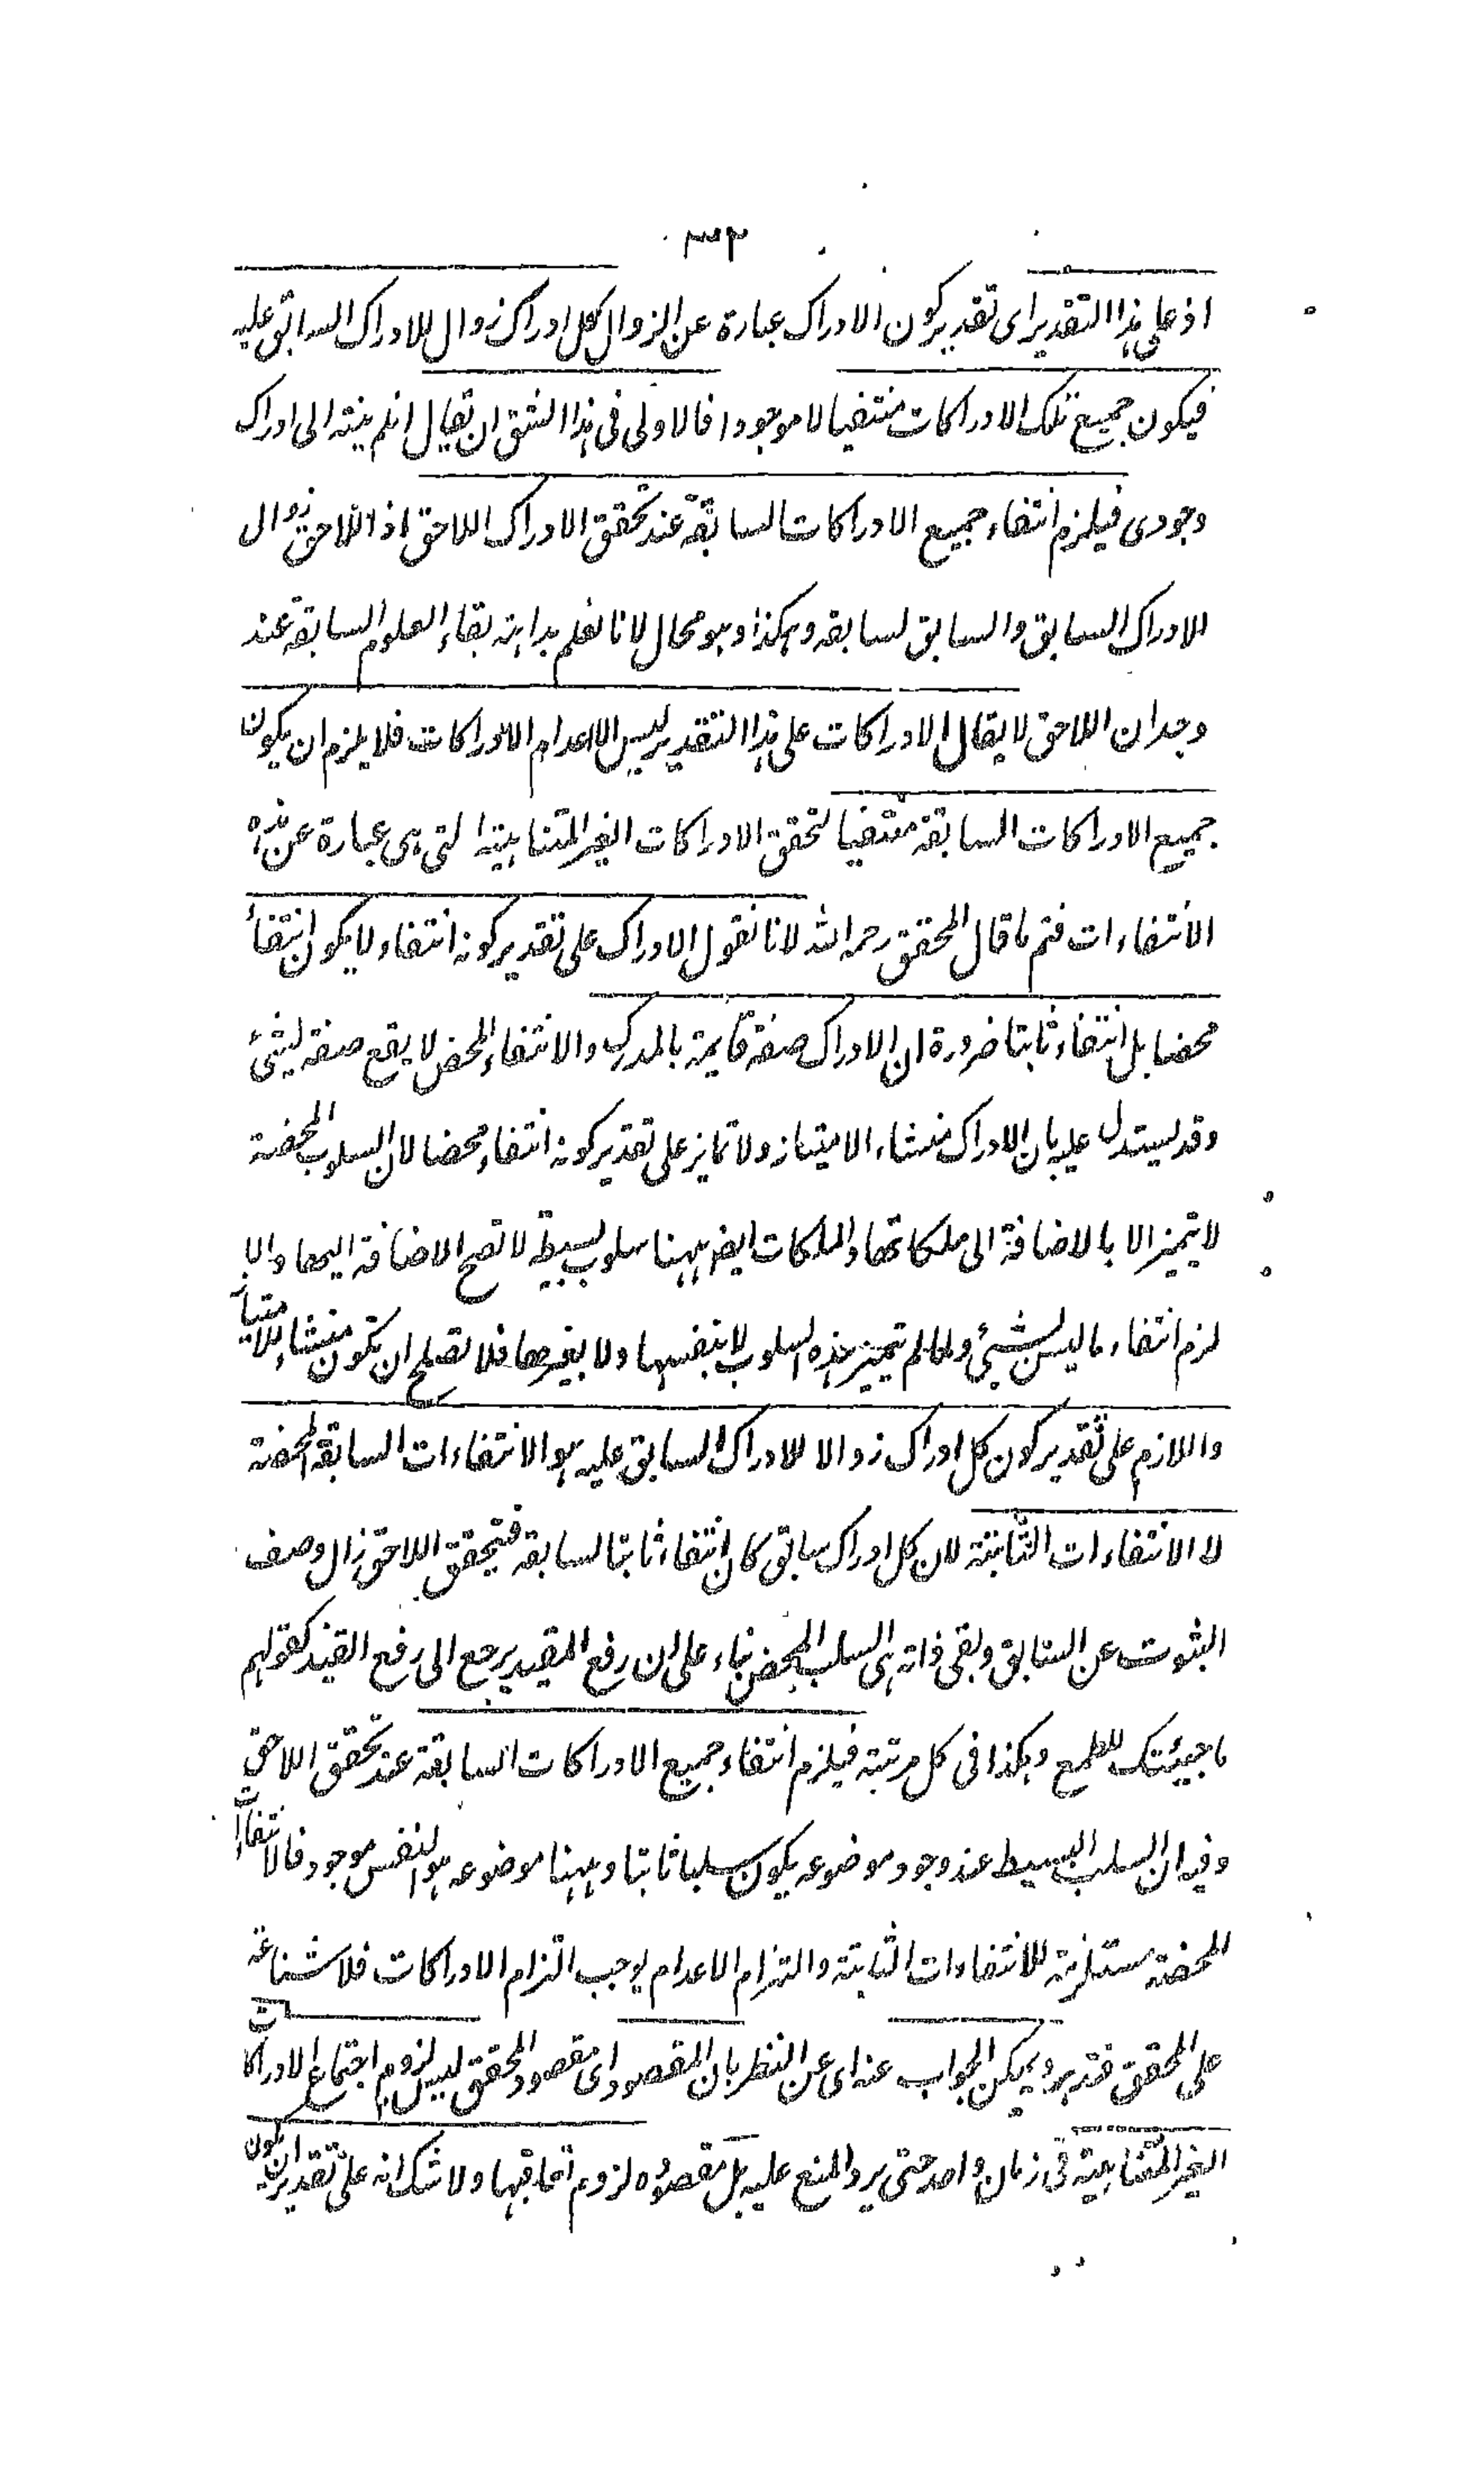 ٣٣
اذ على هذا التقدير اى تقدير كون الادراك عبارة عن الزوال كل ادراك زوال للادراك السابق عليه
فيكون جميع تلك الادراكات منتفيا لا موجودا فالاولى فى هذا الشق ان يقال ان لم ينته الى ادراك
وجودى فيلزم انتفاء جميع الادراكات السابقة عند تحقق الادراك اللاحق اذ اللاحق زوال
الادراك السابق والسابق لسابقه وهكذا وهو محال لانا نعلم بداهة بقاء العلوم السابقة عند
وجدان اللاحق لا يقال الادراكات على هذا التقدير ليس الا اعدام الادراكات فلا يلزم ان يكون
جميع الادراكات السابقة منتفيا لتحقق الادراكات الغير المتناهية التى هى عبارة عن هذه
الانتفاءات فتم ما قال المحقق رحمه الله لانا نقول الادراك على تقدير كونه انتفاء لا يكون انتفاء
محضا بل انتفاء ثابتا ضرورة ان الادراك صفة قايمة بالمدرك والانتفاء المحض لا يقع صفة لشئ
وقد يستدل عليه بان الادراك منشاء الامتياز ولا تمايز على تقدير كونه انتفاء محضا لان السلوب المحضة
لا يتميز الا بالاضافة الى ملكاتها والملكات ايضا ههنا سلوب بسيطة لا تصح الاضافة اليها والا
لزم انتفاء ما ليس بشئ ولما لم تتميز هذه السلوب لا بنفسها ولا بغيرها فلا تصلح ان تكون منشاء للامتياز
واللازم على تقدير كون كل ادراك زوالا للادراك السابق عليه هو الانتفاءات السابقة المحضة
لا الانتفاءات الثابتة لان كل ادراك سابق كان انتفاء ثابتا لسابقه فبتحقق اللاحق زال وصف
الثبوت عن السابق وبقى ذاته هى السلب المحض بناء على ان رفع المقيد يرجع الى رفع القيد كقولهم
ما جيئتك للطمع وهكذا فى كل مرتبة فيلزم انتفاء جميع الادراكات السابقة عند تحقق اللاحق
وفيه ان السلب البسيط عند وجود موضوعه يكون سلبا ثابتا وههنا موضوعه هو النفس موجود فالانتفاءات
المحضة مستلزمة للانتفاءات الثابتة والتزام الاعدام يوجب التزام الادراكات فلا شناعة
على المحقق فتدبر ويمكن الجواب عنه اى عن النظر بان المقصود اى مقصود المحقق ليس لزوم اجتماع الادراكات
الغير المتناهية فى زمان واحد حتى يرد المنع عليه بل مقصوده لزوم تعاقبها ولا شك انه على تقدير ان يكون